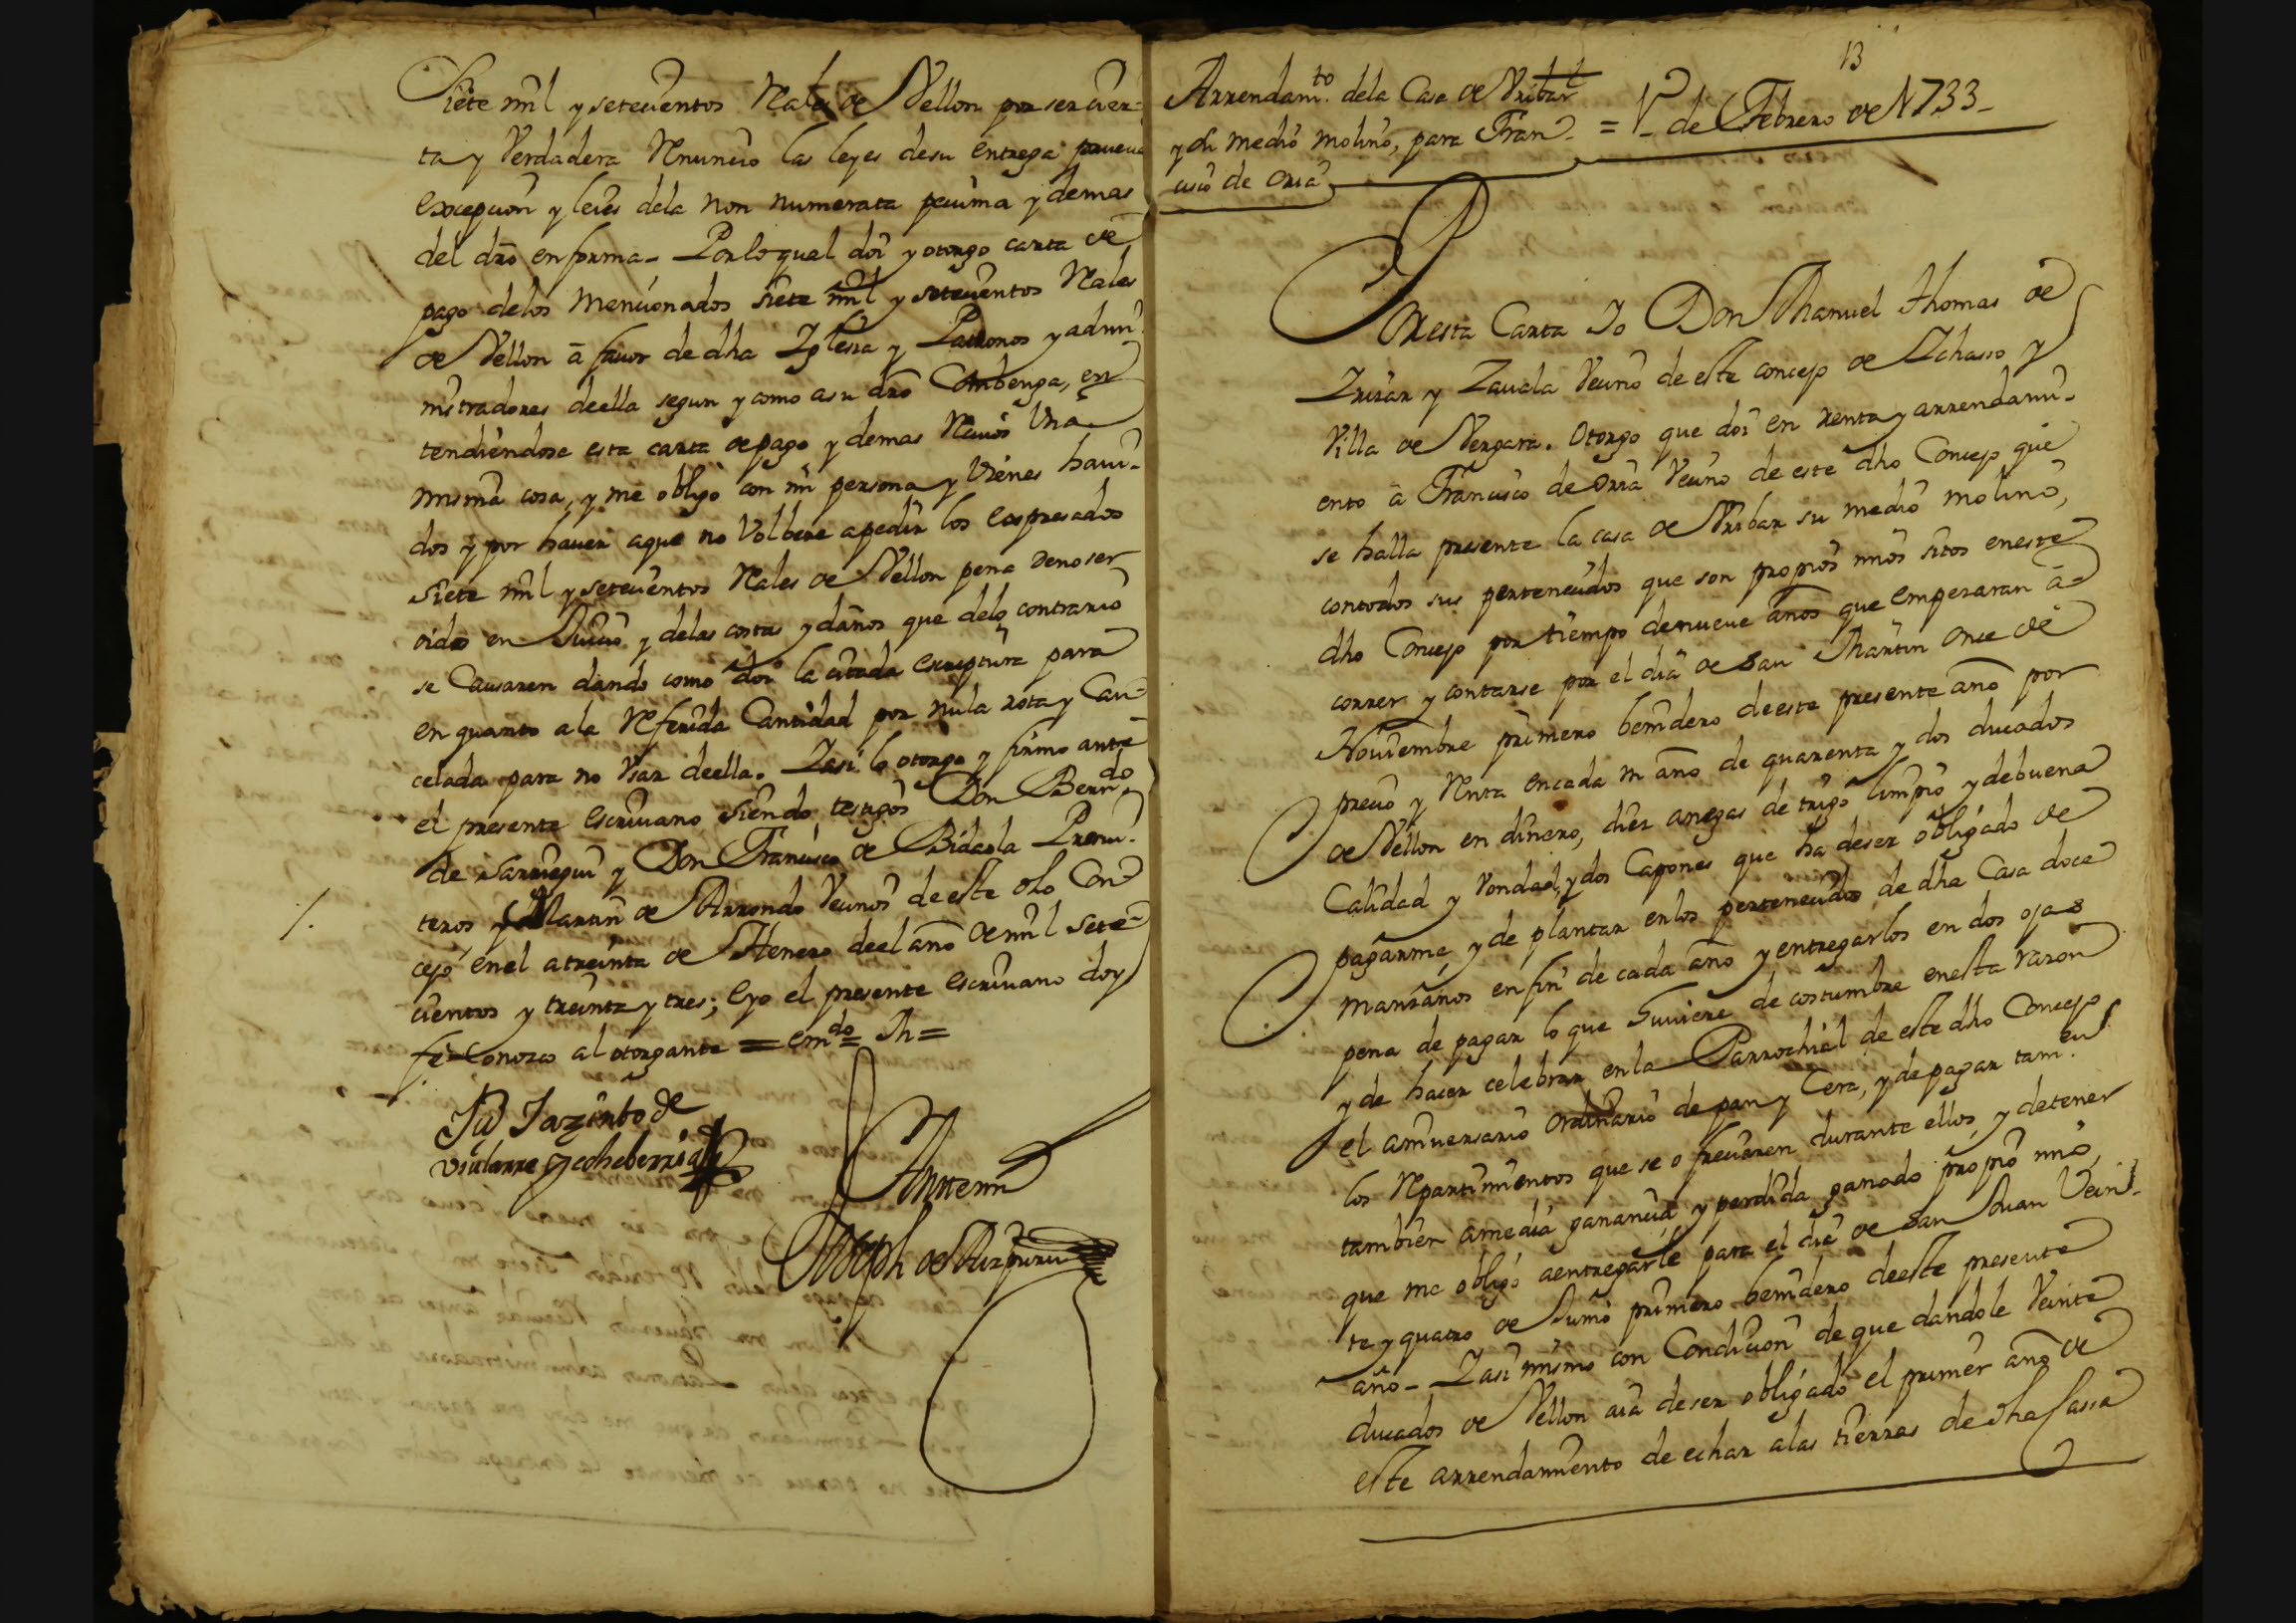 Siete mil y setecientos Rales de Vellon por ser cier-
ta y Verdadera Renuncio las leyes desu entrega prueua
excepcion y leies dela non numerata pecunia y demas
del dro en forma - Por lo qual doi y otorgo carta de
pago delos mencionados siete mil y setecientos Rales
de Vellon â fauor de dha Iglesia y Patronos y admi-
nistradores deella segun y como asu dro Conbenga, en
tendiendose esta carta de pago y demas Reciuos Vna
misma cosa, y me obligo con mi persona y Vienes haui-
dos y por hauer aque no Volbere apedir los expresados
siete mil y setecientos Rales de Vellon pena denoser
oido en Juicio y delas costas y daños que delo contrario
se Causaren dando como doi la citada escriptura para
en quanto ala Referida Cantidad por nula rota y Can-
celada para no Vsar deella. Iasi lo otorgo y firmo ante
el presente escriuano siendo testigos Don Berndo
de Sarriegui y Don Francisco de Bidaola Presui-
teros y Martin de Arrondo Vecinos de este dho Con-
cejo enel atreinta de Henero deel año de mil sete-
cientos y treinta y tres; eyo el presente escriuano doy
fe Conozco al otorgante = emdo = Th =
Jazinto de
vicularre y echeberria
Ante mi
Joseph de Aizpuru
13
Arrendamto dela Casa de Vribar
y de medio molino, para Fran- = 1 de Febrero de 1733 -
cisco de Oria
Por esta Carta Io Don Manuel Thomas de
Irizar y Zauala Vecino de este concejo de Ichasso y
Villa de Vergara. Otorgo que doi en renta y arrendami-
ento â Francisco de Oria Vecino de este dho Concejo que
se halla presente la casa de Vribar su medio molino,
contodos sus pertenecidos que son propios mios sitos eneste
dho Concejo por tiempo denueue años que empezaran â
correr y contarse por el dia de San Martin once de
Nouiembre primero benidero deeste presente año por
precio y Renta encada un año de quarenta y dos ducados
de Vellon en dinero, diez anegas de trigo limpio y debuena
Calidad y Vondad, y dos Capones que ha deser obligado de
pagarme y de plantar enlos pertenecidos de dha Casa doce
manzanos en fin de cada año y entregarlos en dos ojas
pena de pagar lo que huuiere de costumbre enesta razon
y de hacer celebrar enla Parrochial de este dho Concejo
el aniuersario ordinario de pan y Cera, y de pagar tam.en
los Repartimientos que se ofrecieren durante ellos, y detener
tambien amedia ganancia y perdida ganado propio mio,
que me obligo aentregarle para el dia de San Juan Vein-
te y quatro de Junio primero benidero deeste presente
año - Iasi mismo con Condicion de que dandole Veinte
ducados de Vellon aia deser obligado el primer año de
este arrendamiento de echar alas tierras de dha Cassa